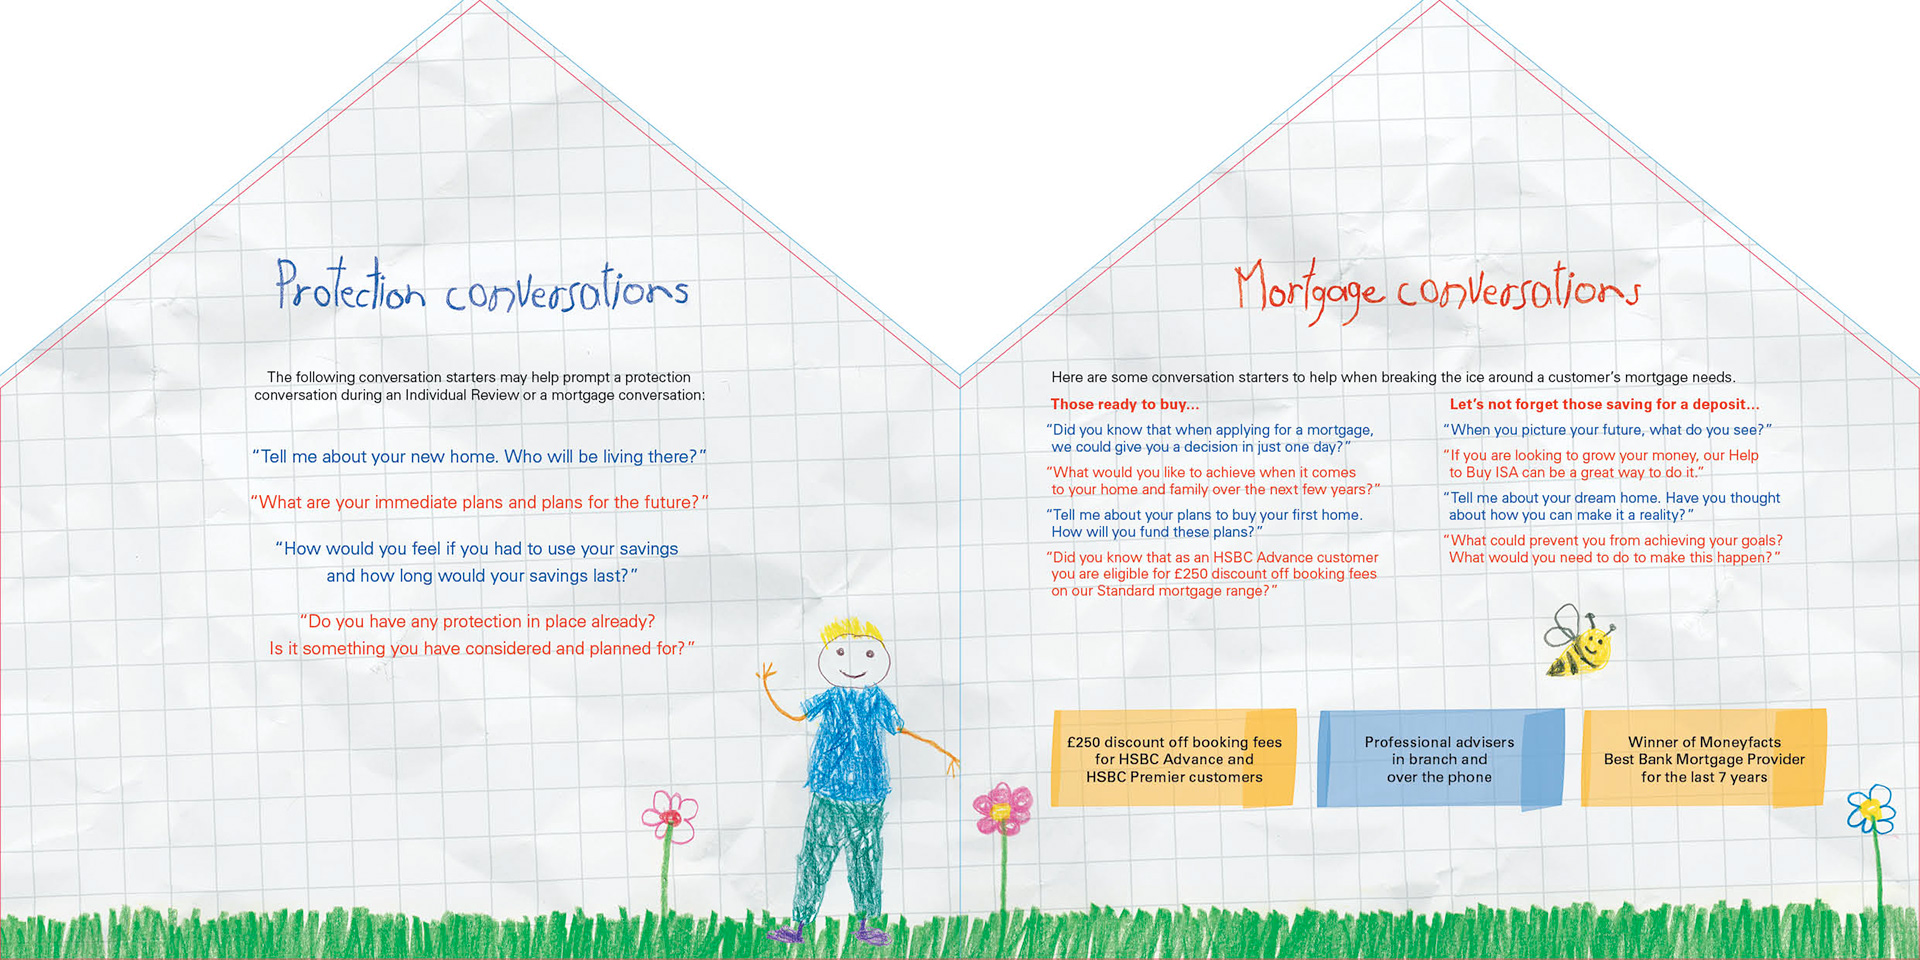 Protection conversations
The following conversation starters may help prompt a protection
conversation during an Individual Review or a mortgage conversation:
“Tell me about your new home. Who will be living there?”
“What are your immediate plans and plans for the future?”
“How would you feel if you had to use your savings
and how long would your savings last?”
“Do you have any protection in place already?
Is it something you have considered and planned for?”
Mortgage conversations
Here are some conversation starters to help when breaking the ice around a customer’s mortgage needs.
Those ready to buy...
“Did you know that when applying for a mortgage,
we could give you a decision in just one day?”
“What would you like to achieve when it comes
to your home and family over the next few years?”
“Tell me about your plans to buy your first home.
How will you fund these plans?”
“Did you know that as an HSBC Advance customer
you are eligible for £250 discount off booking fees
on our Standard mortgage range?”
Let’s not forget those saving for a deposit...
“When you picture your future, what do you see?”
“If you are looking to grow your money, our Help
to Buy ISA can be a great way to do it.”
“Tell me about your dream home. Have you thought
about how you can make it a reality?”
“What could prevent you from achieving your goals?
What would you need to do to make this happen?”
£250 discount off booking fees
for HSBC Advance and
HSBC Premier customers
Professional advisers
in branch and
over the phone
Winner of Moneyfacts
Best Bank Mortgage Provider
for the last 7 years